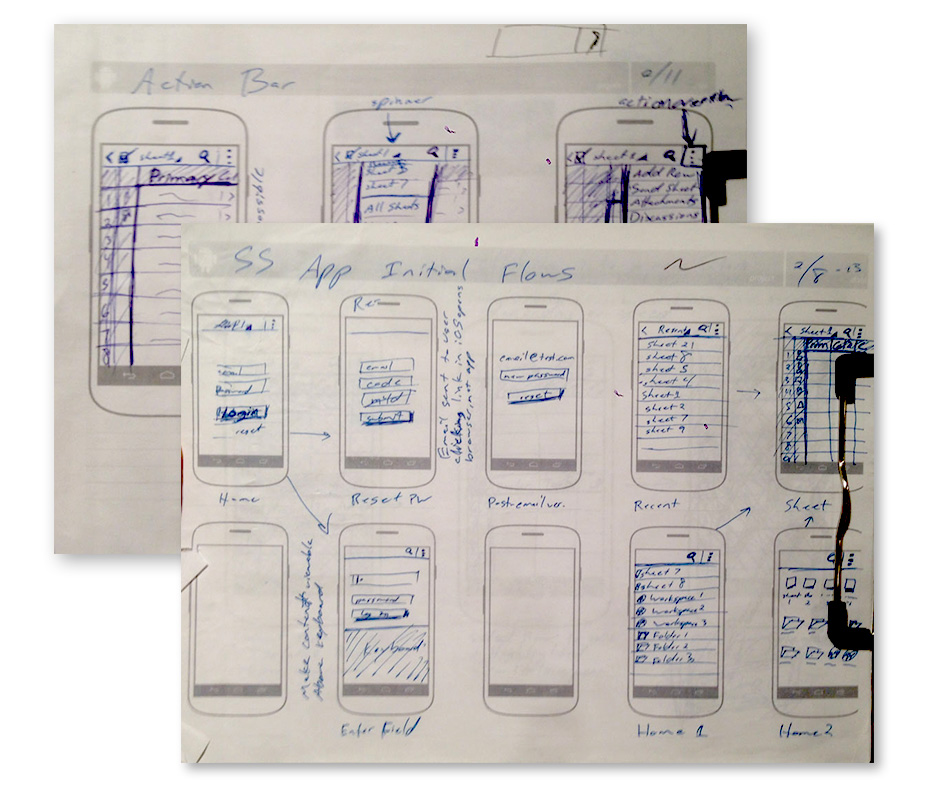 Action Bar
2/11
spinner
sheet1
Primary
sheet1
sheet 7
All Sheets
sheet 1
Add Row
Send Sheet
Attachments
Discussions
SS App Initial Flows
2/8 -13
email
password
Login
reset
Home
email
code
submit
Reset PW
Email sent to user
clicking link in iOS opens
browser, not app
email@test.com
new password
reset
Post-email ver.
< Recent
sheet 21
sheet 8
sheet 5
sheet 4
Sheet 1
sheet 2
sheet 7
sheet 9
Recent
< Sheet 1
Sheet
Make content viewable
above keyboard
password
Log in
Keyboard
Enter Field
sheet 7
sheet 8
Workspace 1
Workspace 2
Workspace 3
Folder 1
Folder 2
Folder 3
Home 1
Home 2